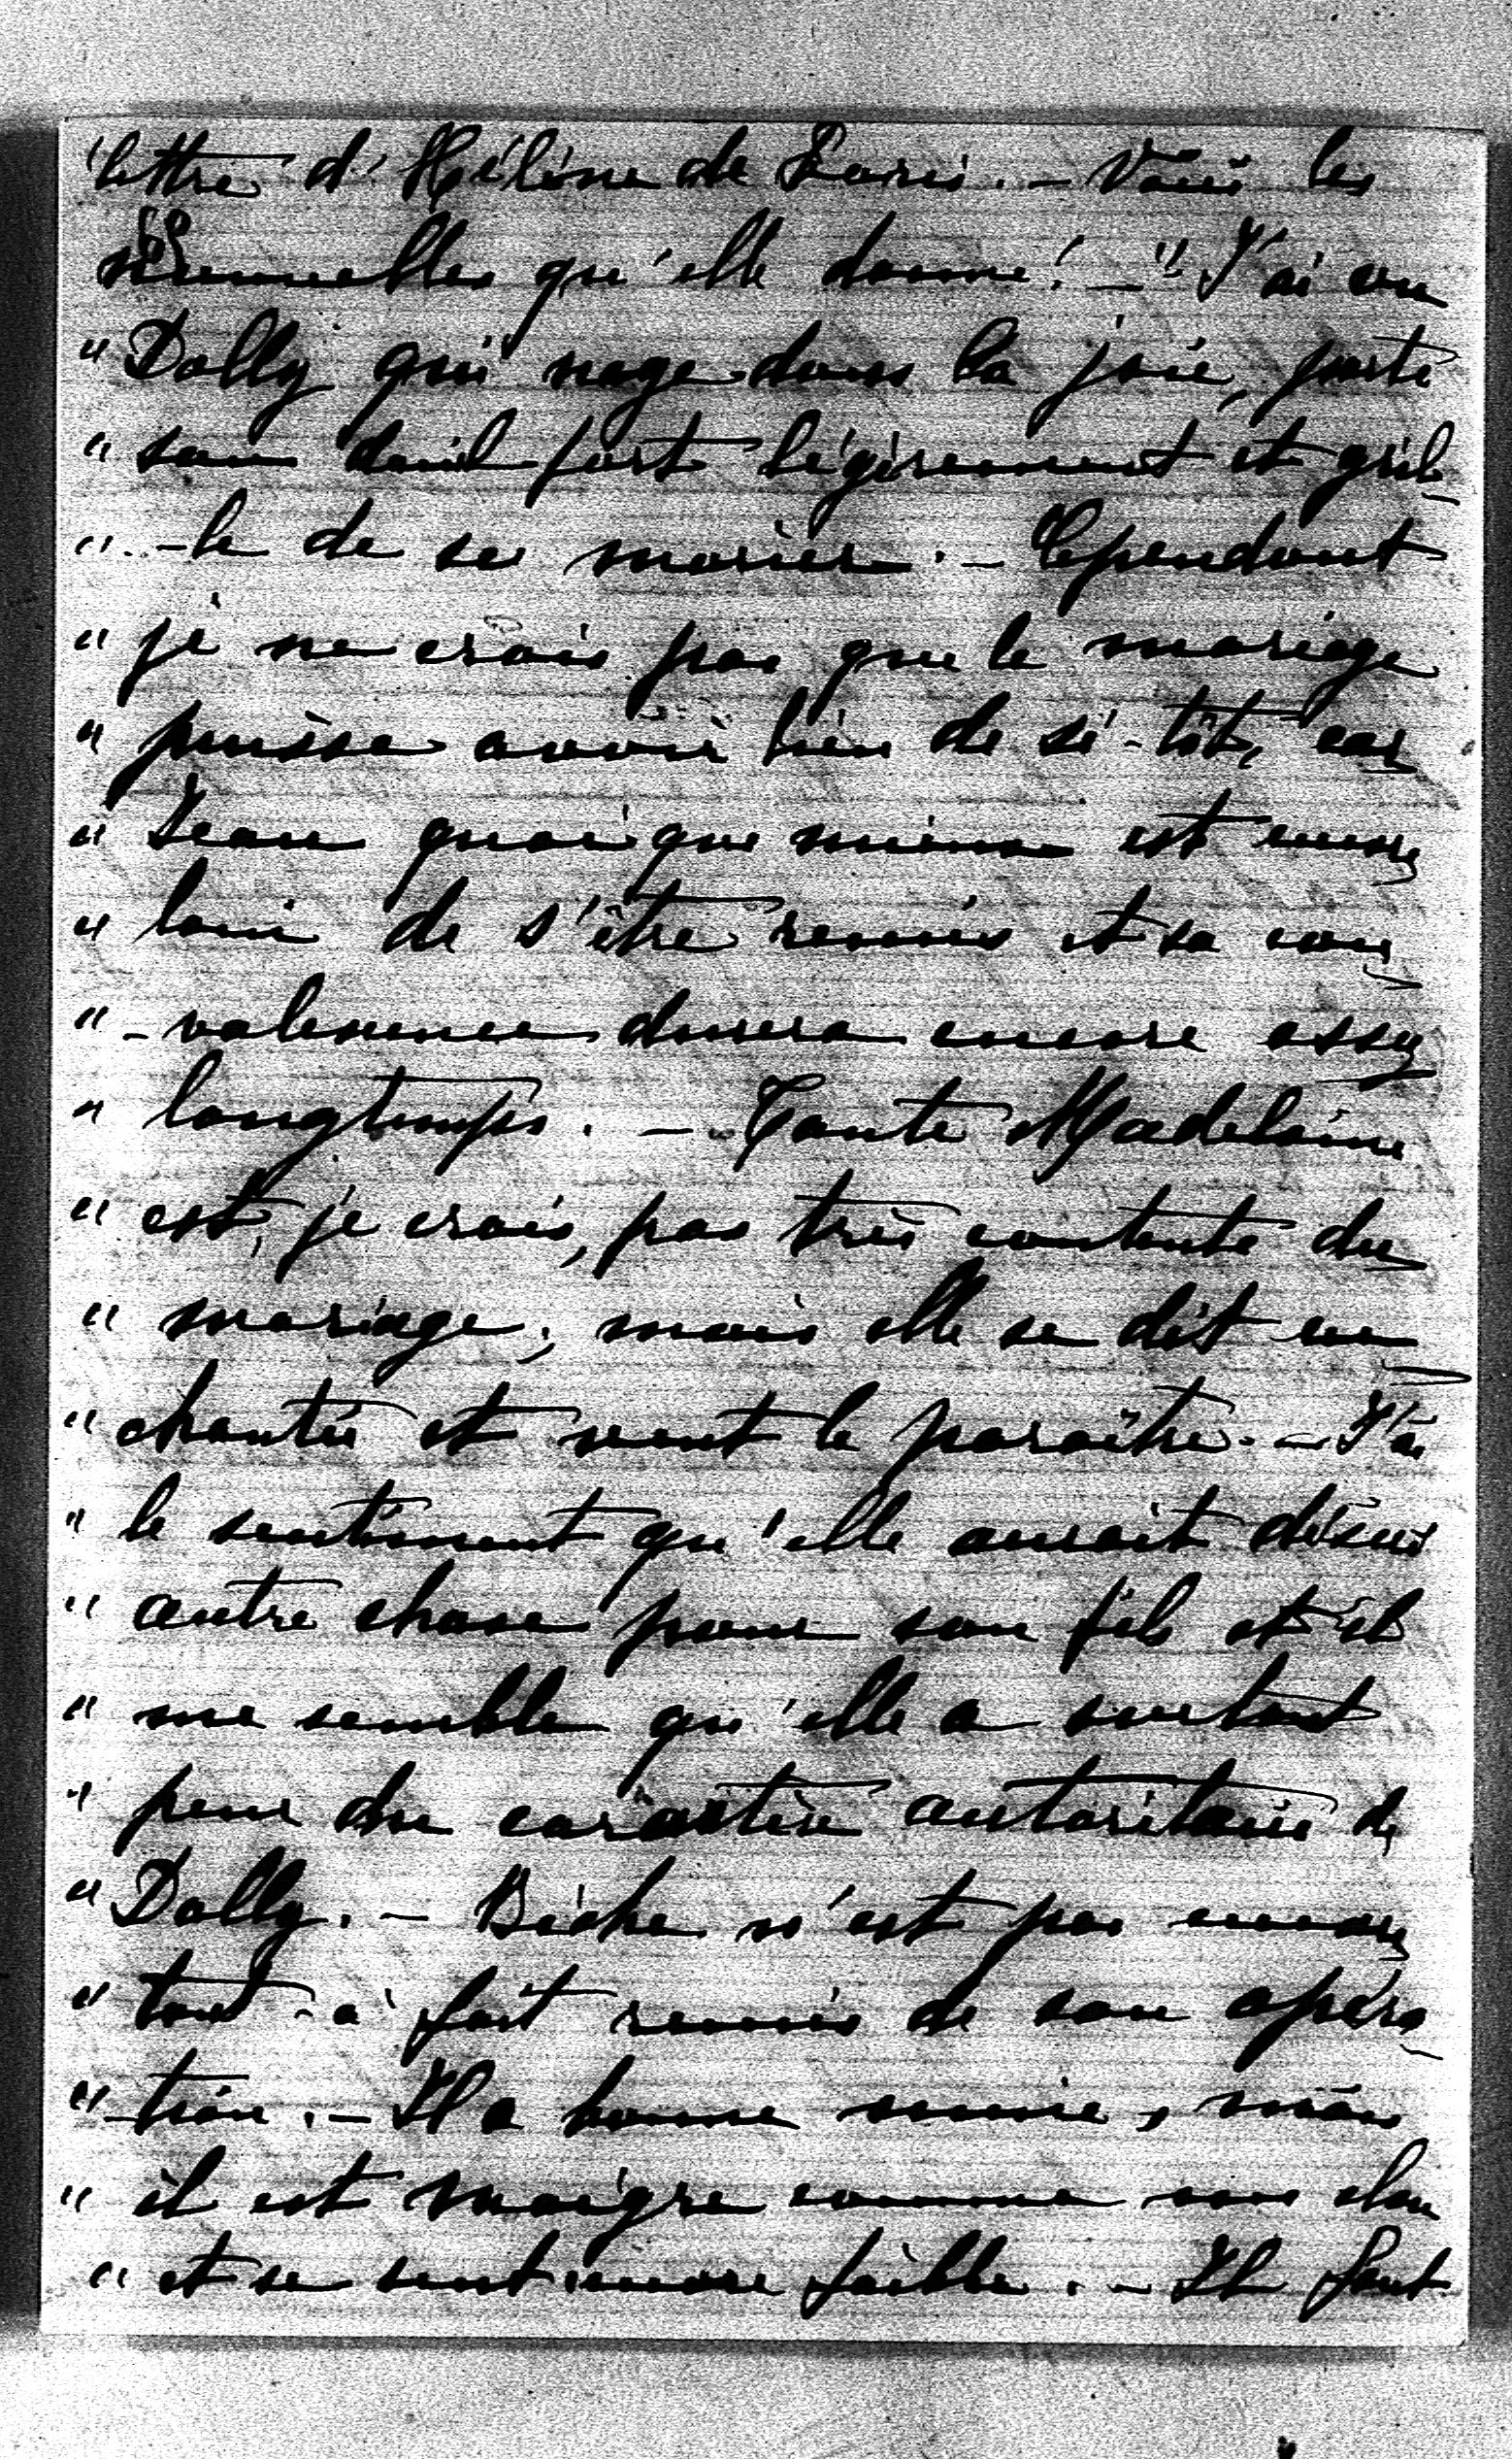 lettre d'Hélène de Paris. – Voici les
nouvelles qu'elle donne: – "J'ai vu
" Dolly qui nage dans la joie, porte
" son deuil fort légèrement et gril-
" -le de se marier. – Cependant
" je ne crois pas que le mariage
" puisse avoir lieu de si-tôt, car
" Jean quoique mieux est encore
" loin de s'être remis et sa con-
" -valescence durera encore assez
" longtemps. – Tante Madeleine
" est, je crois, pas très contente du
" mariage, mais elle se dit en-
" chantée et veut le paraître. – J'ai
" le sentiment qu'elle aurait désiré
" autre chose pour son fils et il
" me semble qu'elle a surtout
" peur du caractère autoritaire de
" Dolly. – Biche n'est pas encore
" tout-à-fait remis de son opéra-
" -tion. – Il a bonne mine, mais
" il est maigre comme un clou
" et se sent encore faible. – Il faut